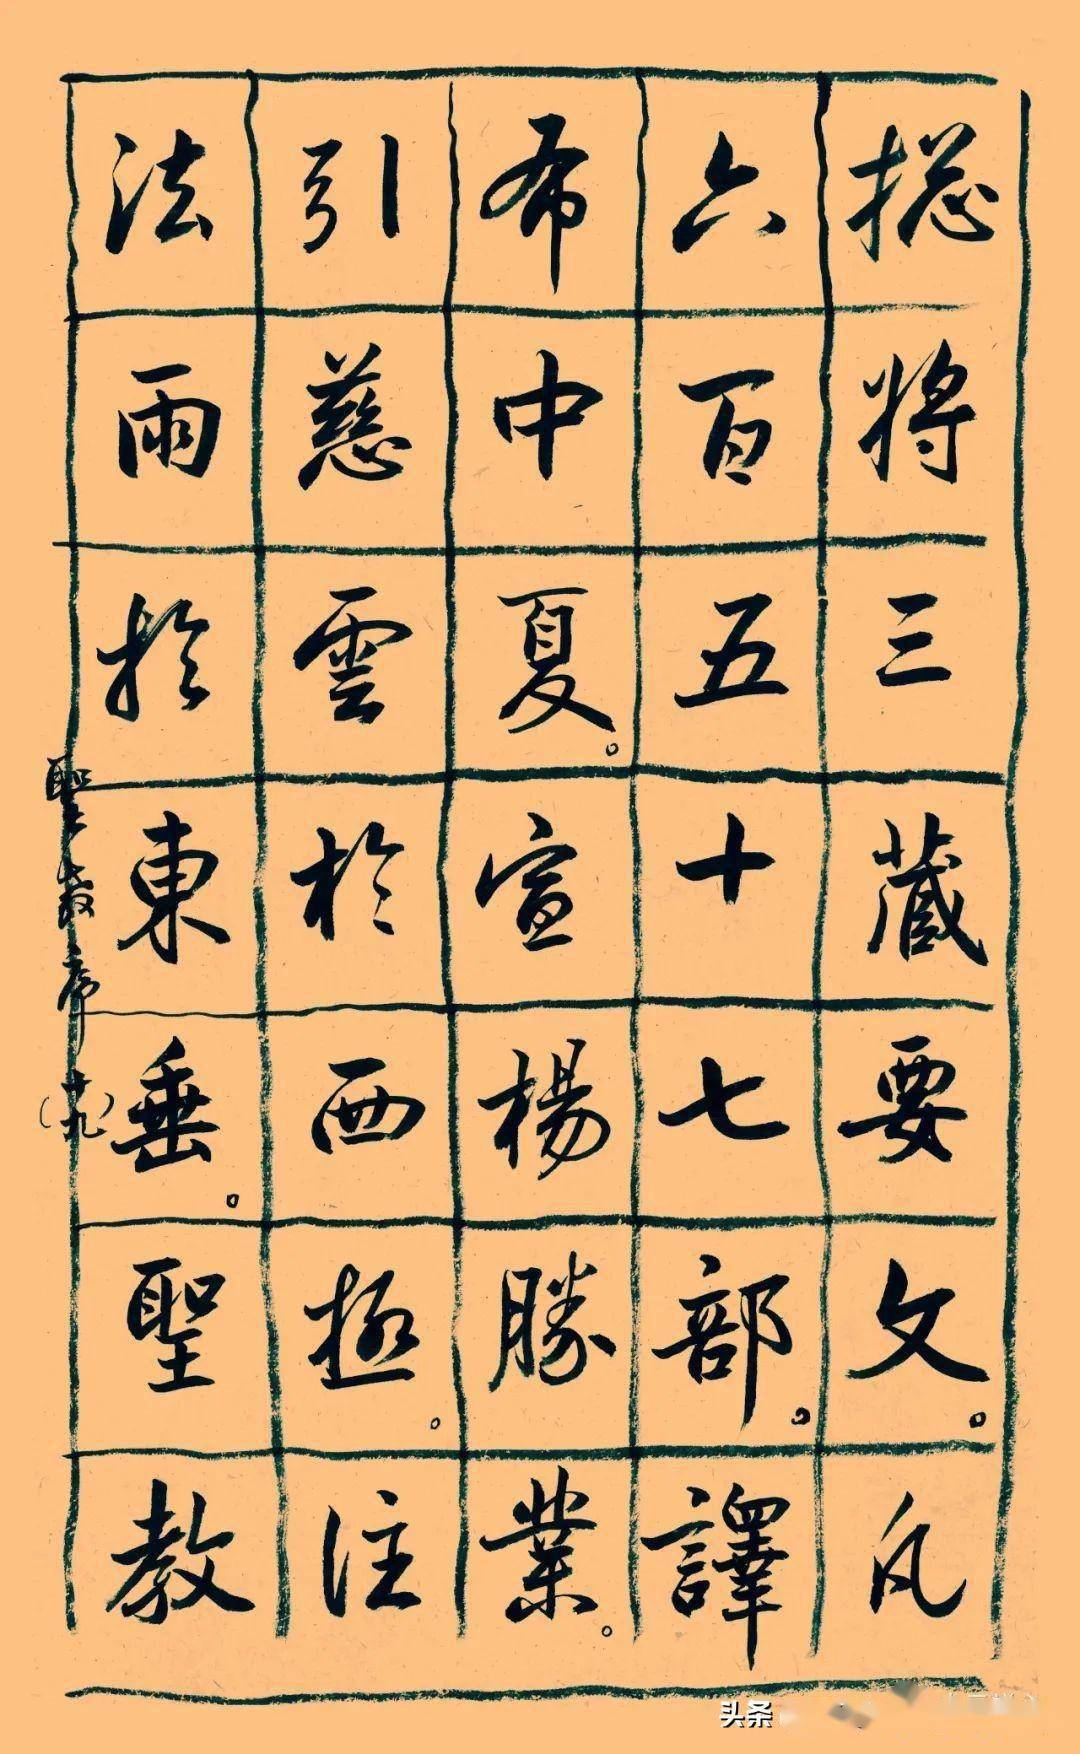 揔將三藏要文。凡
六百五十七部。譯
布中夏。宣楊勝業。
引慈雲於西極。注
法雨於東垂。聖教
聖教序（廿九）
头条